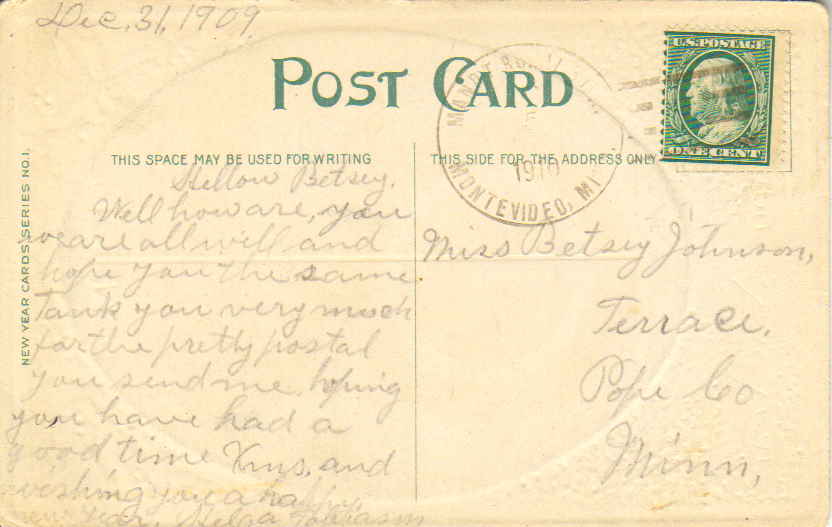 Dec. 31, 1909
POST CARD
U.S. POSTAGE
ONE CENT
MONTEVIDEO, MI
1910
THIS SPACE MAY BE USED FOR WRITING
THIS SIDE FOR THE ADDRESS ONLY
NEW YEAR CARDS, SERIES NO. 1.
Hellow Betsey.
Well how are, you
we are all well and
hope you the same
Tank you very much
for the pretty postal
you send me, hoping
you have had a
good time Xmas, and
wishing you a happy
new year, Helga
Miss Betsey Johnson,
Terrace,
Pope Co
Minn,